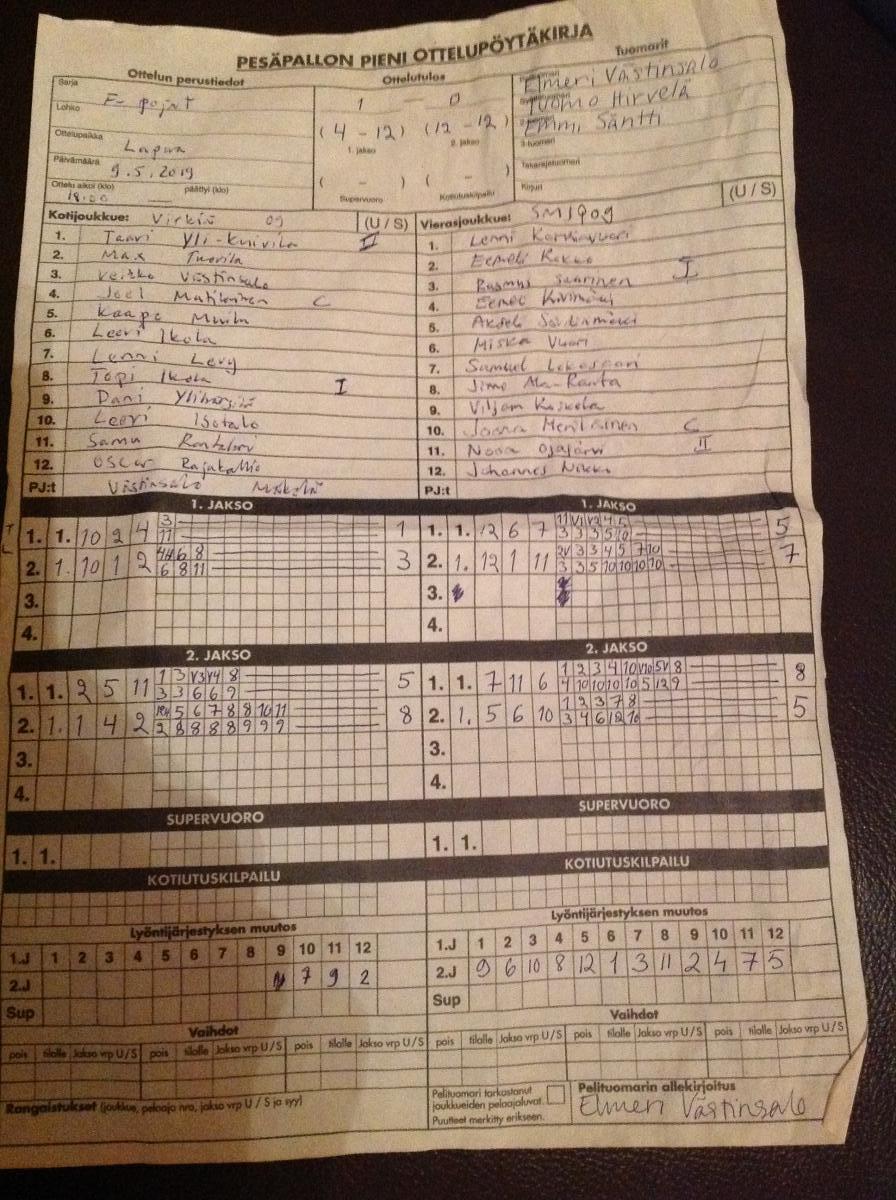 PESÄPALLON PIENI OTTELUPÖYTÄKIRJA
Ottelun perustiedot
Ottelutulos
Tuomarit
Sarja
F- pojat
Lohko
Ottelupaikka
Lapua
Päivämäärä
9.5.2019
Ottelu alkoi (klo) päättyi (klo)
18:00
1 - 0
(4 - 12) (12 - 12)
1. jakso 2. jakso
( - ) ( - )
Supervuoro Kotiutuskilpailu
Elmeri Västinsalo
Tuomo Hirvelä
Emmi Säntti
Takarajatuomari
Kirjuri
(U / S)
Kotijoukkue: Virkiä 09 (U / S)
1. Taavi Yli-Knivila II
2. Max Tuorila
3. Veikko Västinsalo
4. Joel Matikainen C
5. Kaapo Muila
6. Leevi Ikola
7. Lenni Levy
8. Topi Ikola I
9. Dani
10. Leevi Isotalo
11. Samu
12. Oscar Rajakallio
PJ:t Västinsalo Mäkelä
Vierasjoukkue: SMJ909
1. Lenni
2. Eemeli Kokko
3. Rasmus Saarinen I
4. Eemel
5. Akseli
6. Miska Vuori
7. Samuel
8. Jimo Ala-Ranta
9. Viljam Koskela
10. Joona C
11. Nooa Ojajärvi II
12. Johannes Nikko
PJ:t
1. JAKSO
1. 1. 10 2 4 3 1
11
2. 1. 10 1 2 4 4 6 8 3
6 8 11
3.
4.
1. JAKSO
1. 1. 12 6 7 11 V1 V2 4 5 5
3 3 3 5 10
2. 1. 12 1 11 2V 3 3 4 5 7 10 7
3 3 5 10 10 10 10
3.
4.
2. JAKSO
1. 1. 2 5 11 1 3 V3 V4 8 5
3 3 6 6 9
2. 1. 1 4 2 5 6 7 8 8 10 11 8
2 8 8 8 8 9 9 9
3.
4.
2. JAKSO
1. 1. 7 11 6 1 2 3 4 10 V10 5V 8 8
4 10 10 10 10 5 12 9
2. 1. 5 6 10 1 2 3 7 8 5
3 4 6 12 10
3.
4.
SUPERVUORO
1. 1.
SUPERVUORO
1. 1.
KOTIUTUSKILPAILU
KOTIUTUSKILPAILU
Lyöntijärjestyksen muutos
1.J 1 2 3 4 5 6 7 8 9 10 11 12
2.J 7 9 2
Sup
Lyöntijärjestyksen muutos
1.J 1 2 3 4 5 6 7 8 9 10 11 12
2.J 9 6 10 8 12 1 3 11 2 4 7 5
Sup
Vaihdot
pois tilalle Jakso vrp U / S pois tilalle Jakso vrp U / S pois tilalle Jakso vrp U / S
Vaihdot
pois tilalle Jakso vrp U / S pois tilalle Jakso vrp U / S pois tilalle Jakso vrp U / S
Rangaistukset (joukkue, pelaaja nro, jakso vrp U / S ja syy)
Pelituomari tarkastanut
joukkueiden pelaajaluvat.
Puutteet merkitty erikseen.
Pelituomarin allekirjoitus
Elmeri Västinsalo